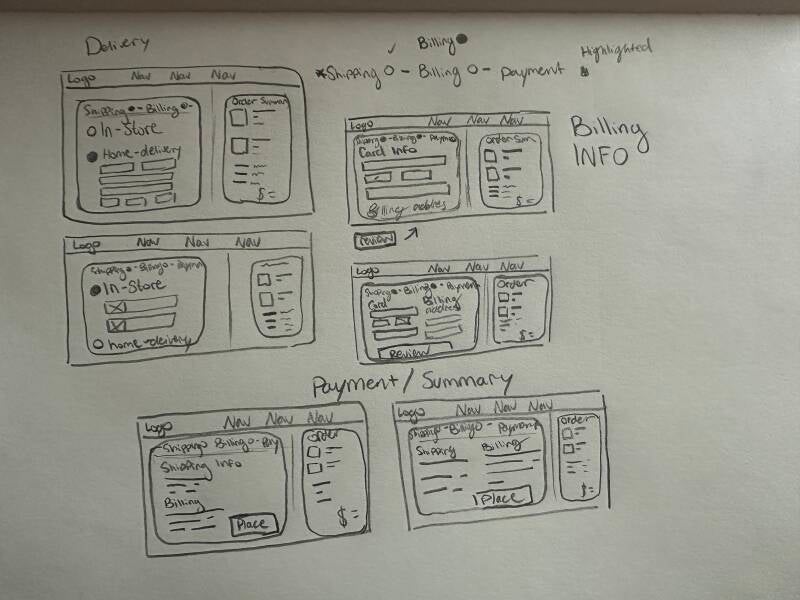 Delivery
Billing
Shipping - Billing - payment
Highlighted
Logo Nav Nav Nav
Shipping - Billing -
In-Store
Home-delivery
Order Summary
$ =
Logo Nav Nav Nav
Shipping - Billing - Payment
Card Info
Billing address
Order Sum
$ =
Billing
INFO
review
Logo Nav Nav Nav
Shipping - Billing - Paym
In-Store
home-delivery
$ =
Logo Nav Nav Nav
Shipping - Billing - Payment
Card
Billing
address
Review
Order
$ =
Payment / Summary
Logo Nav Nav Nav
Shipping Billing - Pay
Shipping Info
Billing
Place
Order
$ =
Logo Nav Nav Nav
Shipping - Billing - Payment
Shipping Billing
Place
Order
$ =